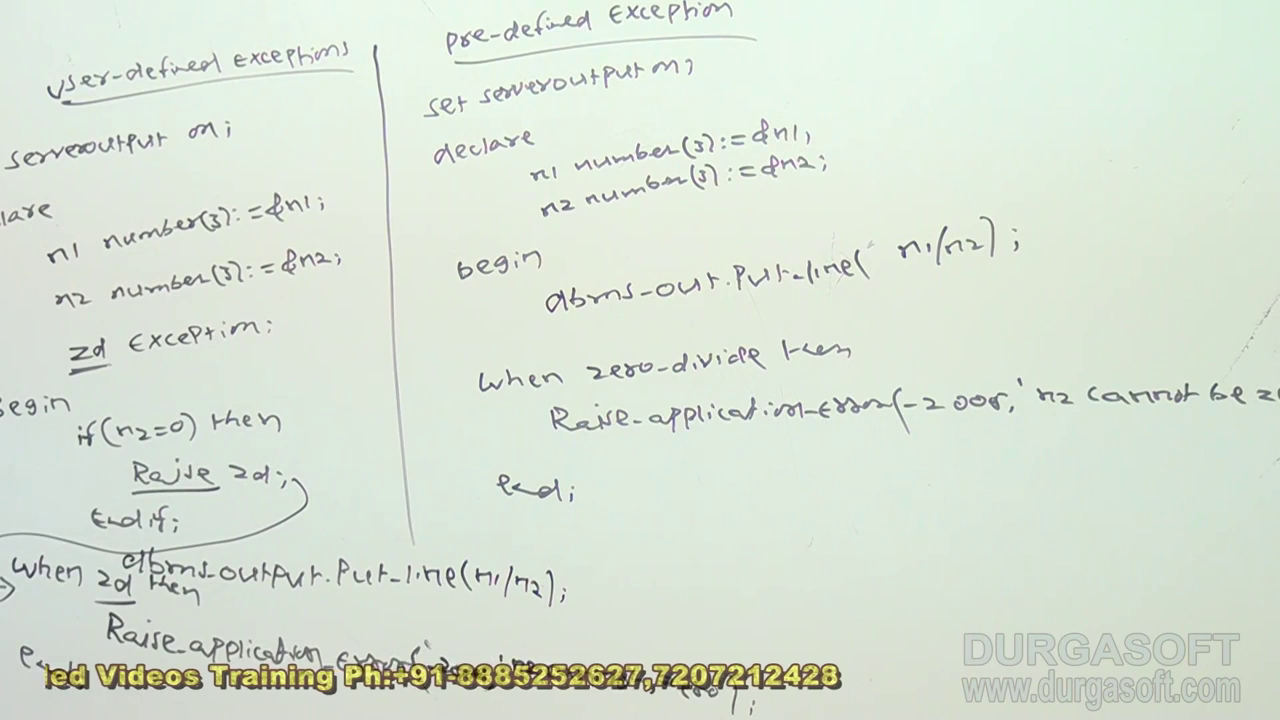 user-defined exceptions
serveroutput on;
lare
n1 number(3):=&n1;
n2 number(3):=&n2;
zd exception;
Begin
if(n2=0) then
Raise zd;
End if;
dbms_output.put_line(n1/n2);
when zd then
Raise_application_error(
pre-defined exception
set serveroutput on;
declare
n1 number(3):=&n1;
n2 number(3):=&n2;
begin
dbms_out.put_line( n1/n2);
when zero_divide then
Raise_application_error(-2000s,'n2 cannot be
end;
ed Videos Training Ph:+91-8885252627,7207212428
DURGASOFT
www.durgasoft.com